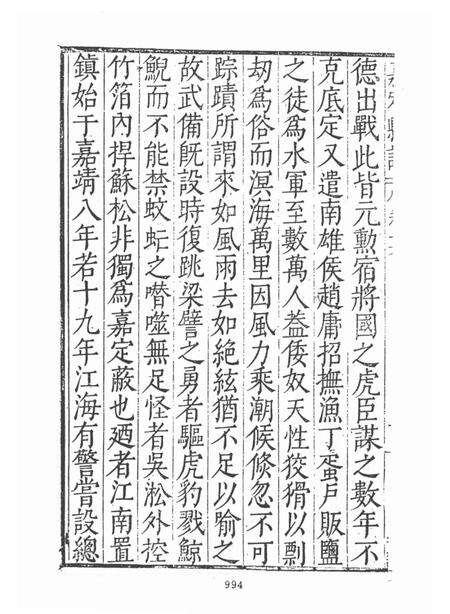 德出戰此皆元勳宿將國之虎臣謀之數年不
克底定又遣南雄侯趙庸招撫漁丁蛋戶販鹽
之徒為水軍至數萬人葢倭奴天性狡猾以剽
劫為俗而溟海萬里因風力乘潮候倏忽不可
踪蹟所謂來如風雨去如絶絃猶不足以喻之
故武備旣設時復跳梁譬之勇者驅虎豹戮鯨
鯢而不能禁蚊䖟之噆噬無足怪者吳淞外控
竹箔內捍蘇松非獨為嘉定蔽也廼者江南置
鎮始于嘉靖八年若十九年江海有警嘗設總
994